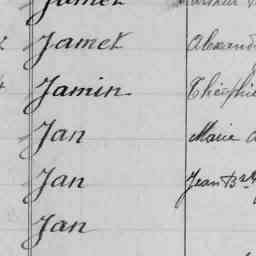 Jamet
Jamet Alexand
Jamin Théophi
Jan Marie
Jan Jean Bte
Jan